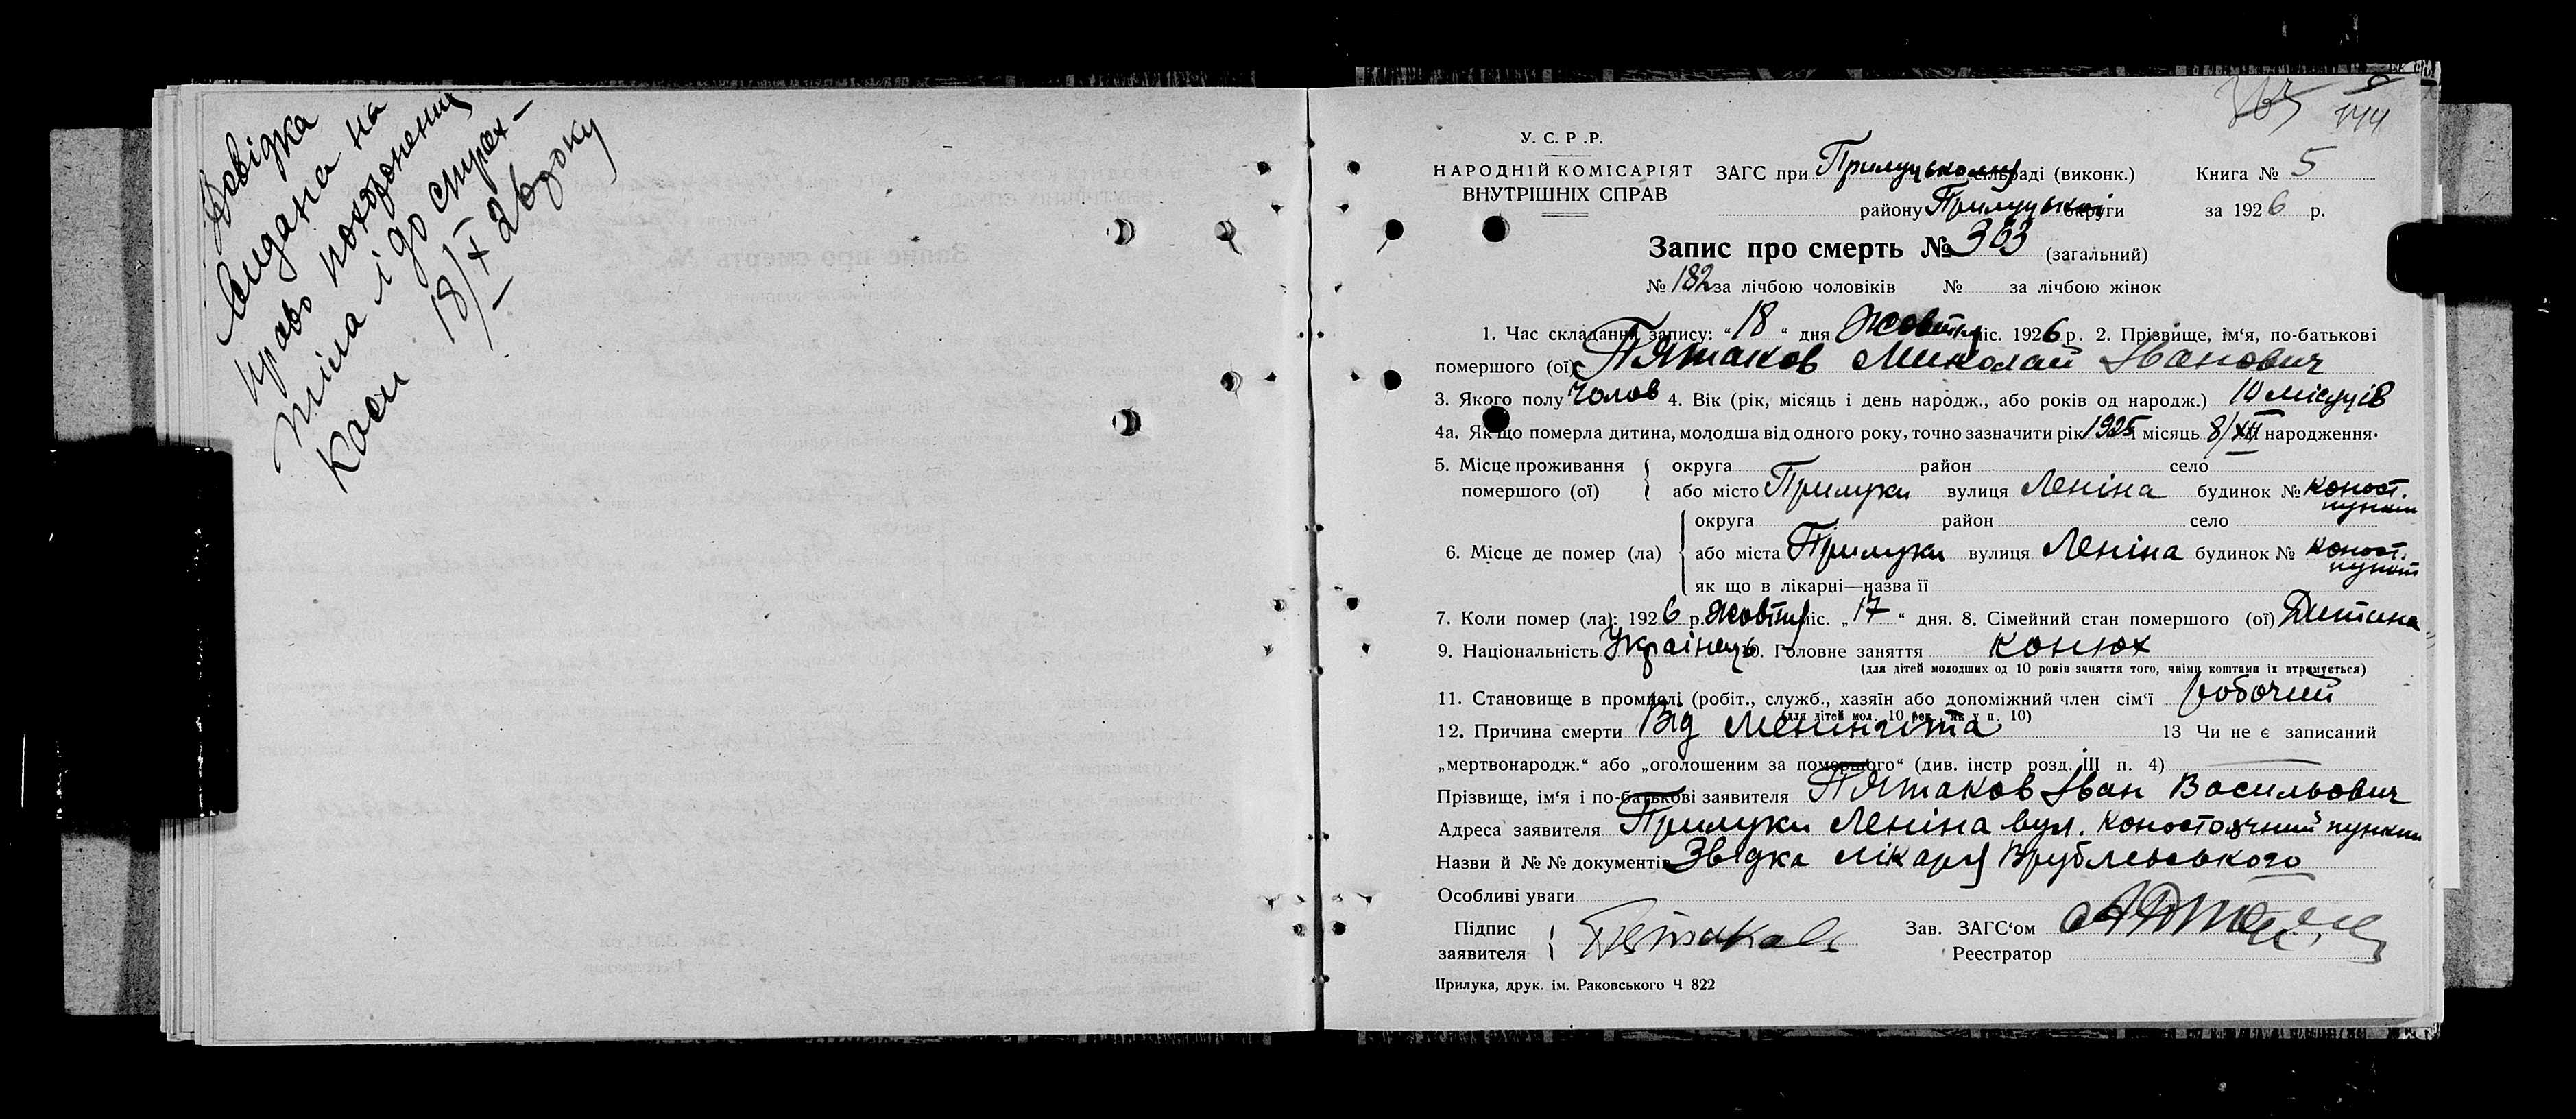 Довідка
видана на
право похоронення
тіла і до страх-
каси 18/X 26 року
У. С. Р. Р.
НАРОДНІЙ КОМІСАРІЯТ
ВНУТРІШНІХ СПРАВ
ЗАГС при Прилуцькому сільраді (виконк.) Книга № 5
району Прилуцької округи за 1926 р.
Запис про смерть № 363 (загальний)
№ 182 за лічбою чоловіків № за лічбою жінок
1. Час складання запису: "18" дня Жовтня міс. 1926 р. 2. Прізвище, ім'я, по-батькові
помершого (ої) Пятаков Миколай Іванович
3. Якого полу чолов 4. Вік (рік, місяць і день народж., або років од народж.) 10 місяців
4а. Як що померла дитина, молодша від одного року, точно зазначити рік 1925 і місяць 8/XII народження.
5. Місце проживання помершого (ої) { округа район село
або місто Прилуки вулиця Леніна будинок № коност. пункт
6. Місце де помер (ла) { округа район село
або міста Прилуки вулиця Леніна будинок № коност. пункт
як що в лікарні—назва її
7. Коли помер (ла): 1926 р. Жовтня міс. „17" дня. 8. Сімейний стан помершого (ої) Дитина
9. Національність Українець 10. Головне заняття конюх
(для дітей молодших од 10 років заняття того, чиїми коштами їх втримується)
11. Становище в промислі (робіт., служб., хазяїн або допоміжний член сім'ї робочий
(для дітей мол. 10 рок., як у п. 10)
12. Причина смерти Від менінгіта 13 Чи не є записаний
„мертвонародж." або „оголошеним за помершого" (див. інстр розд. III п. 4)
Прізвище, ім'я і по-батькові заявителя Пятаков Іван Васильович
Адреса заявителя Прилуки Леніна вул. Коностоячний пункт
Назви й №№ документів Звідка лікаря Врублевського
Особливі уваги
Підпис заявителя { Пятаков Зав. ЗАГС'ом
Реестратор
Прилука, друк. ім. Раковського Ч 822